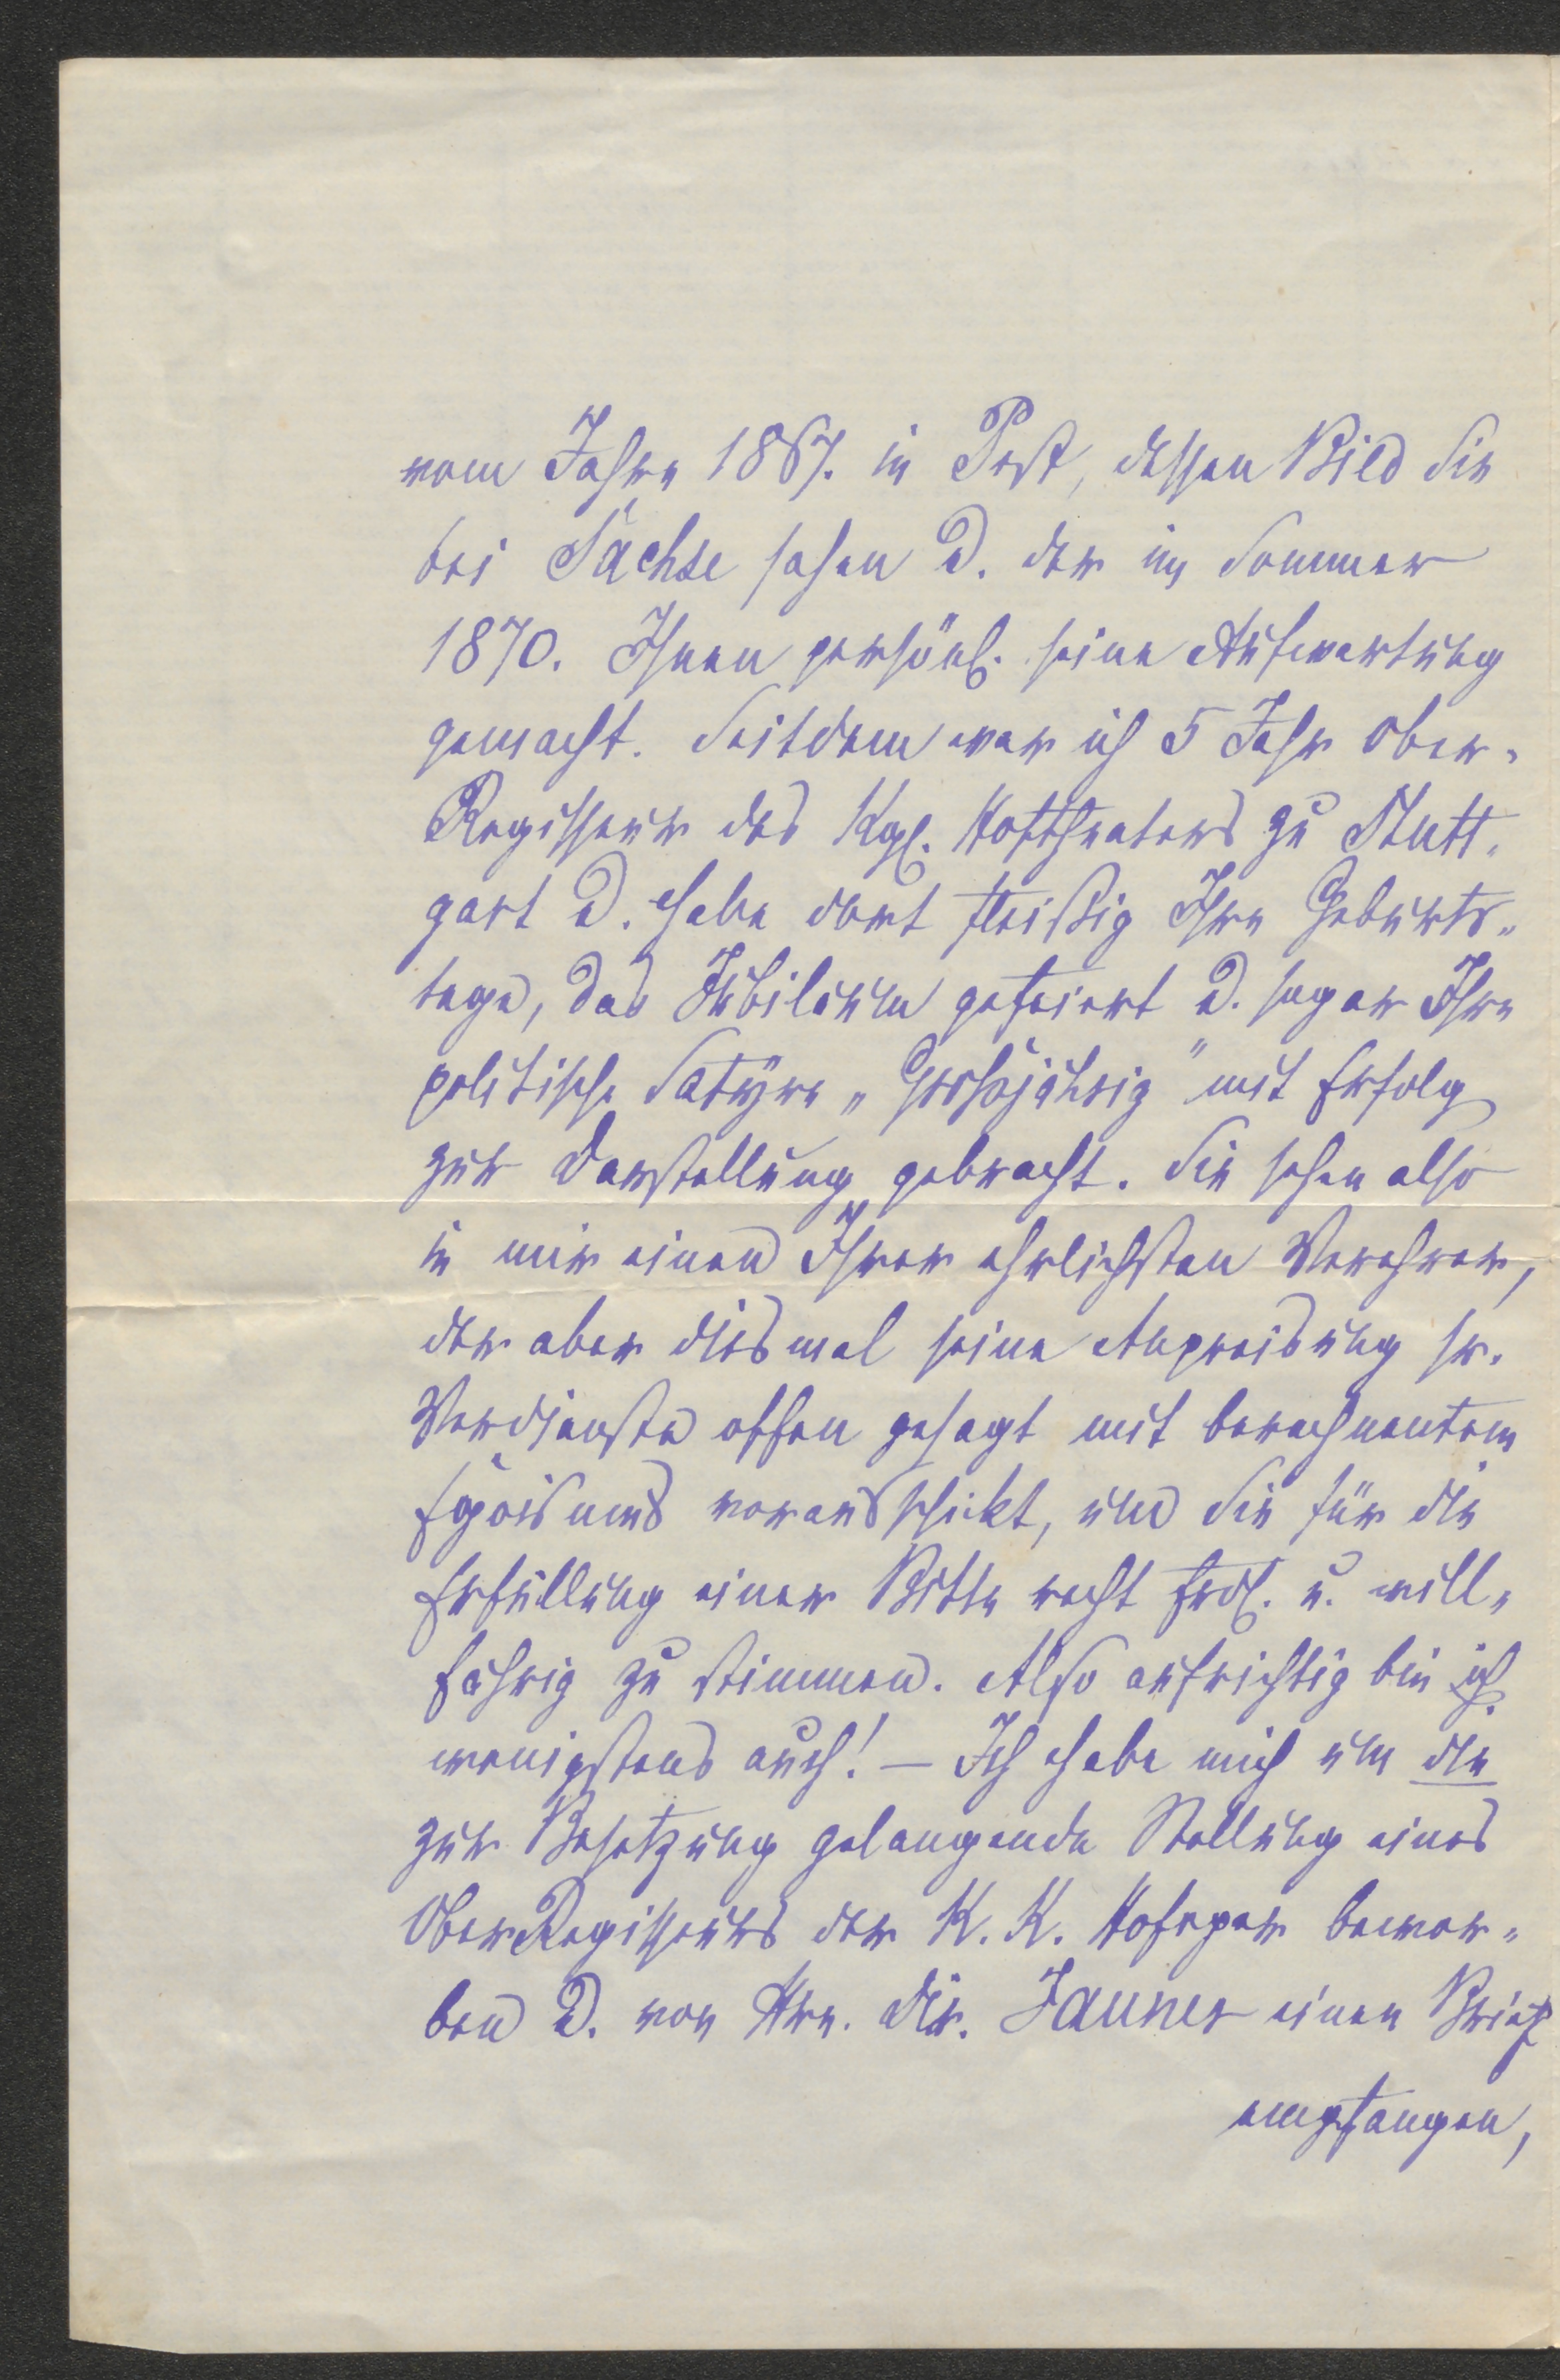 vom Jahre 1867. in Pest, dessen Bild Sie
bei Sachse sahen u. der im Sommer
1870. Ihnen persönl. seine Aufwartung
gemacht. Seitdem war ich 5 Jahr Ober-
Regisseur des Kgl. Hoftheaters zu Stutt-
gart u. habe dort fleißig Ihre Geburts-
tage, das Jubiläum gefeiert u. sogar Ihre
politische Satyre „Großjährig" mit Erfolg
zur Darstellung gebracht. Sie sehen also
in mir einen Ihrer ehrlichsten Verehrer,
der aber diesmal seine Anpreisung sr.
Verdienste offen gesagt mit berechnentem
Egoismus vorausschickt, um Sie für die
Erfüllung einer Bitte recht frdl. u. will-
fährig zu stimmen. Also aufrichtig bin ich
wenigstens auch! – Ich habe mich um die
zur Besetzung gelangende Stellung eines
OberRegisseurs der K. K. Hofoper bewor-
ben u. von Hrn. Dir. Jauner einen Brief
empfangen,